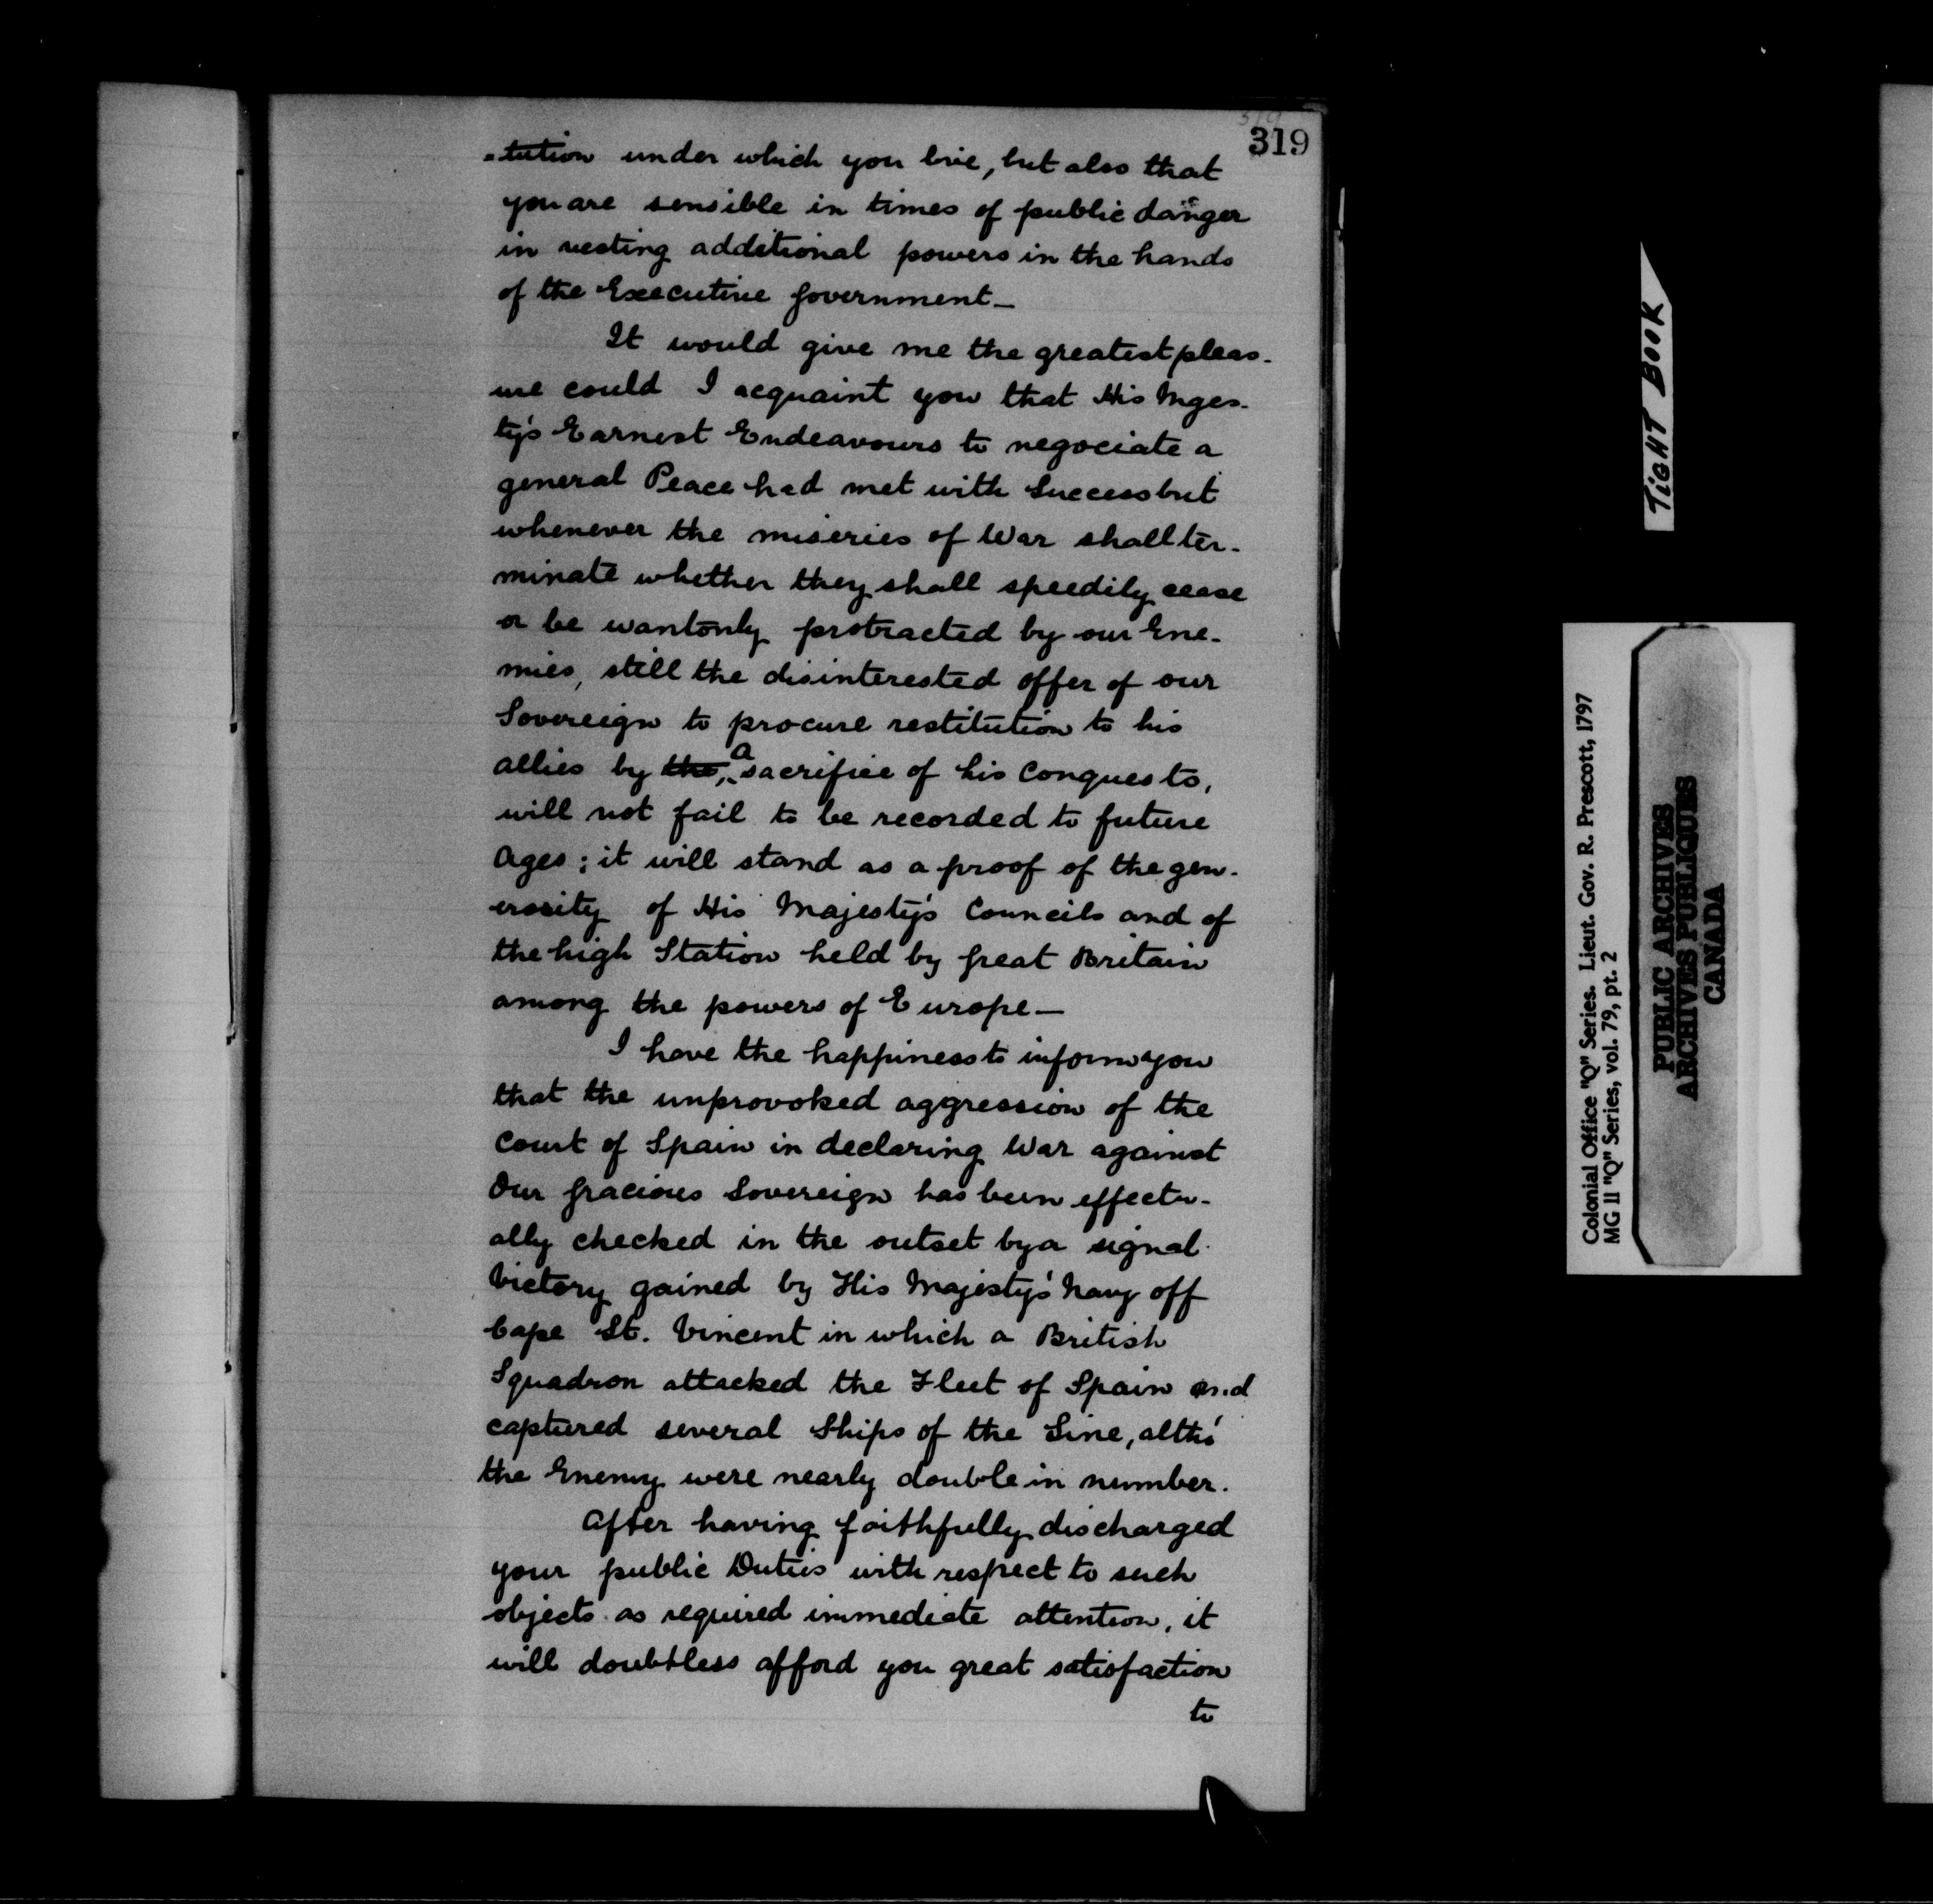 319
319
=tution under which you live, but also that
you are sensible in times of public danger
in vesting additional powers in the hands
of the Executive Government—
It would give me the greatest pleas-
ure could I acquaint you that His Mges-
ty's Earnest Endeavours to negociate a
general Peace had met with Success but
whenever the miseries of War shall ter-
minate whether they shall speedily cease
or be wantonly protracted by our Ene-
mies, still the disinterested offer of our
Sovereign to procure restitution to his
allies by the, a sacrifice of his Conquests,
will not fail to be recorded to future
Ages; it will stand as a proof of the gen-
erosity of His Majesty's Councils and of
the high Station held by Great Britain
among the powers of Europe—
I have the happiness to inform you
that the unprovoked aggression of the
Court of Spain in declaring War against
Our Gracious Sovereign has been effectu-
ally checked in the outset by a signal
Victory gained by His Majesty's Navy off
Cape St. Vincent in which a British
Squadron attacked the Fleet of Spain and
captured several Ships of the Line, altho'
the Enemy were nearly double in number.
After having faithfully discharged
your public Duties with respect to such
objects as required immediate attention, it
will doubtless afford you great satisfaction
to
TIGHT BOOK
Colonial Office "Q" Series. Lieut. Gov. R. Prescott, 1797
MG 11 "Q" Series, vol. 79, pt. 2
PUBLIC ARCHIVES
ARCHIVES PUBLIQUES
CANADA